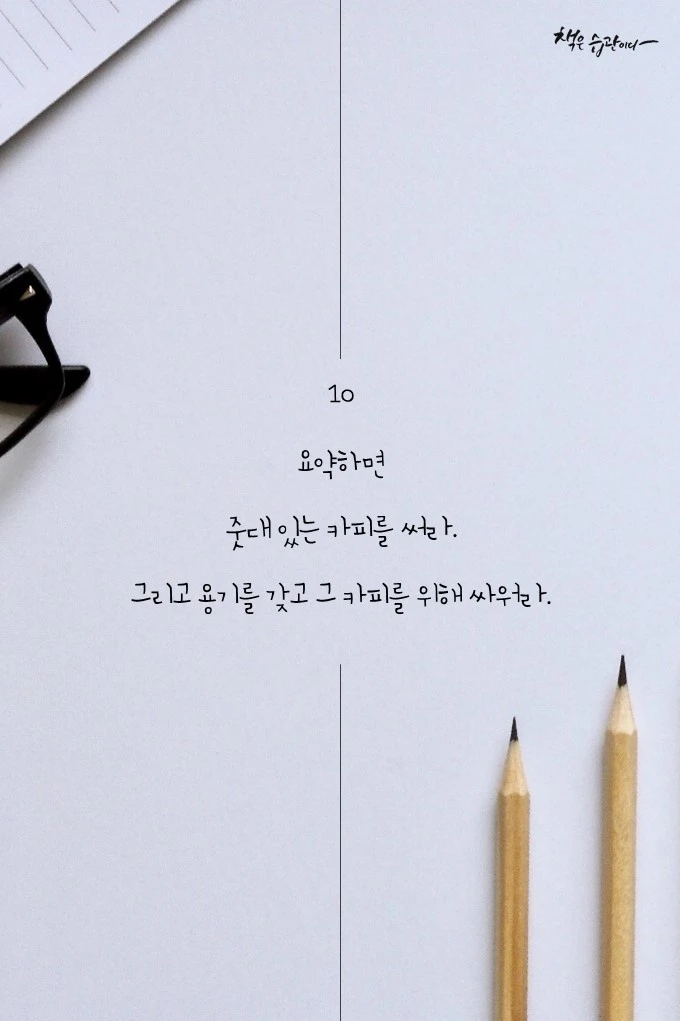 책은 습관이다
10
요약하면
줏대 있는 카피를 써라.
그리고 용기를 갖고 그 카피를 위해 싸워라.